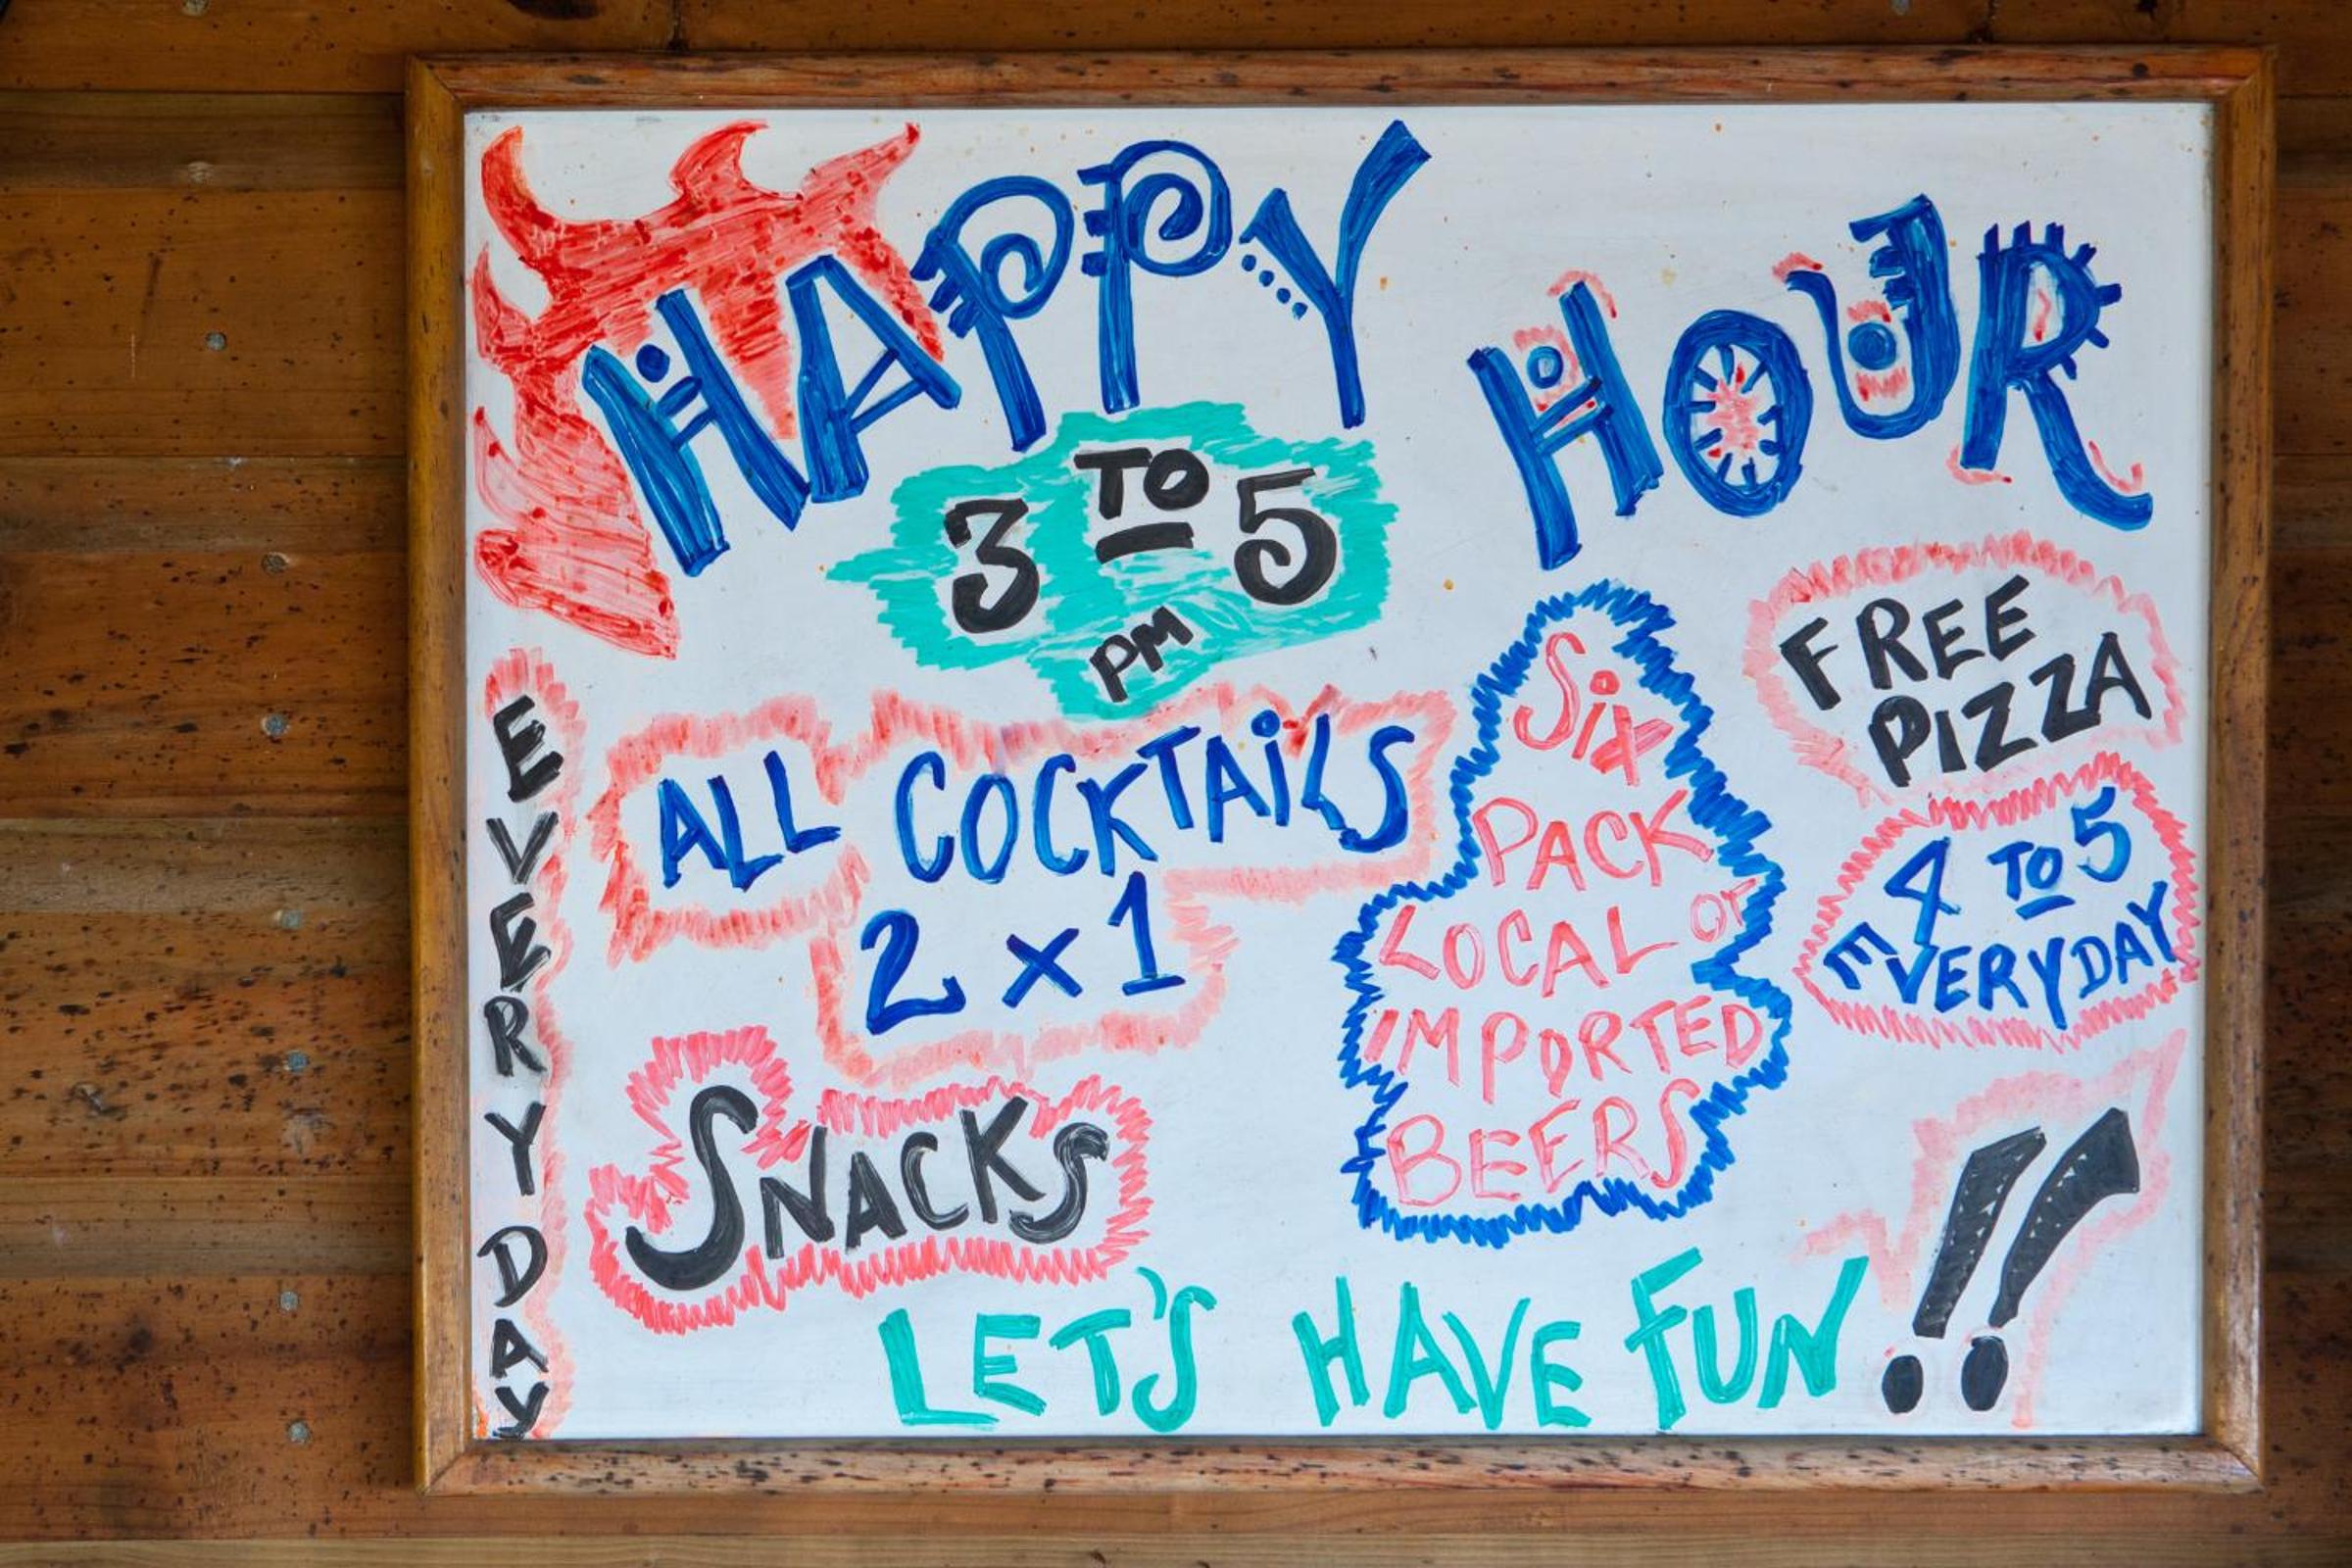 HAPPY HOUR
3 TO 5
PM
EVERY DAY
ALL COCKTAiLS
2 x 1
SNACKS
Six
PACK
LOCAL or
iMPORTED
BEERS
FREE
PIZZA
4 TO 5
EVERYDAY
LET'S HAVE FUN!!